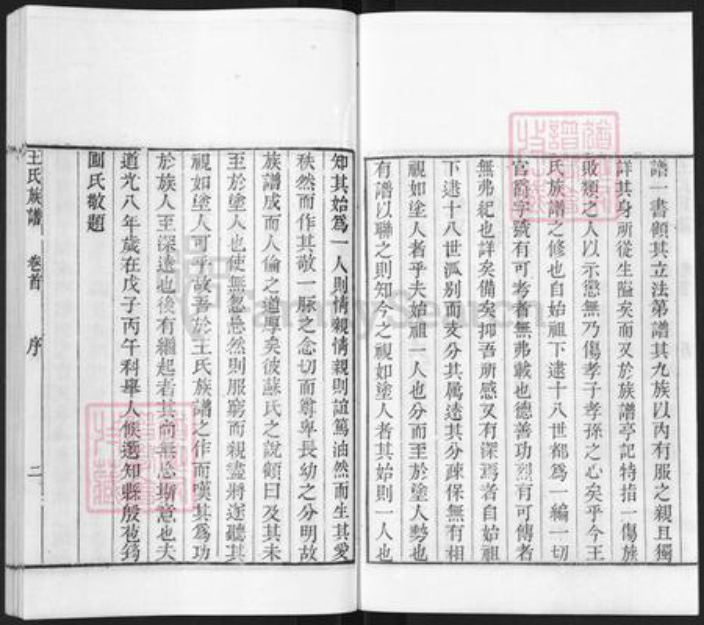 譜一書顧其立法第譜其九族以內有服之親且獨
詳其身所從生隘矣而又於族譜亭記特指一傷族
敗類之人以示懲無乃傷孝子孝孫之心矣乎今王
氏族譜之修也自始祖下逮十八世都為一編一切
官爵字號有可考者無弗載也德善功烈有可傳者
無弗紀也詳矣備矣抑吾所感又有深焉者自始祖
下逮十八世派别而支分其属逺其分疎保無有相
視如塗人者乎夫始祖一人也分而至於塗人勢也
有譜以聯之則知今之視如塗人者其始則一人也
知其始為一人則情親情親則誼篤油然而生其愛
秩然而作其敬一脈之念切而尊卑長幼之分明故
族譜成而人倫之道厚矣彼蘇氏之說顧曰及其未
至於塗人也使無忽忘然則服窮而親盡將遂聽其
視如塗人可乎故吾於王氏族譜之作而嘆其為功
於族人至深遠也後有繼起者其尚無忘斯意也夫
道光八年歲在戊子丙午科舉人候選知縣殷苞筠
圃氏敬題
王氏族譜 卷首 序 二
FamilySearch